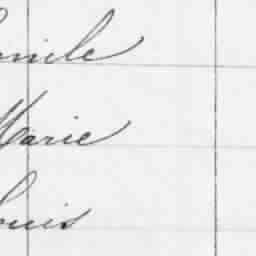 Emile
Marie
Louis